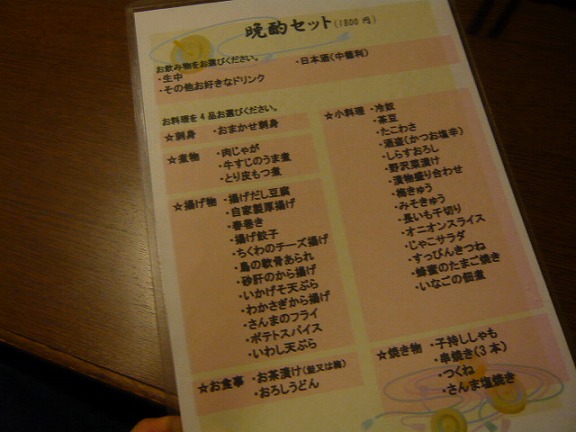 晩酌セット(1800円)
お飲み物をお選びください。
・生中 ・日本酒(中徳利)
・その他お好きなドリンク
お料理を4品お選びください。
☆刺身 ・おまかせ刺身
☆煮物 ・肉じゃが
・牛すじのうま煮
・とり皮もつ煮
☆揚げ物 ・揚げだし豆腐
・自家製厚揚げ
・春巻き
・揚げ餃子
・ちくわのチーズ揚げ
・鳥の軟骨あられ
・砂肝のから揚げ
・いかげそ天ぷら
・わかさぎから揚げ
・さんまのフライ
・ポテトスパイス
・いわし天ぷら
☆お食事 ・お茶漬け
・おろしうどん
☆小料理 ・冷奴
・茶豆
・たこわさ
・酒盗(かつお塩辛)
・しらすおろし
・野沢菜漬け
・漬物盛り合わせ
・梅きゅう
・みそきゅう
・長いも千切り
・オニオンスライス
・じゃこサラダ
・すっぴんきつね
・蜂蜜のたまご焼き
・いなごの佃煮
☆焼き物 ・子持ししゃも
・串焼き(3本)
・つくね
・さんま塩焼き